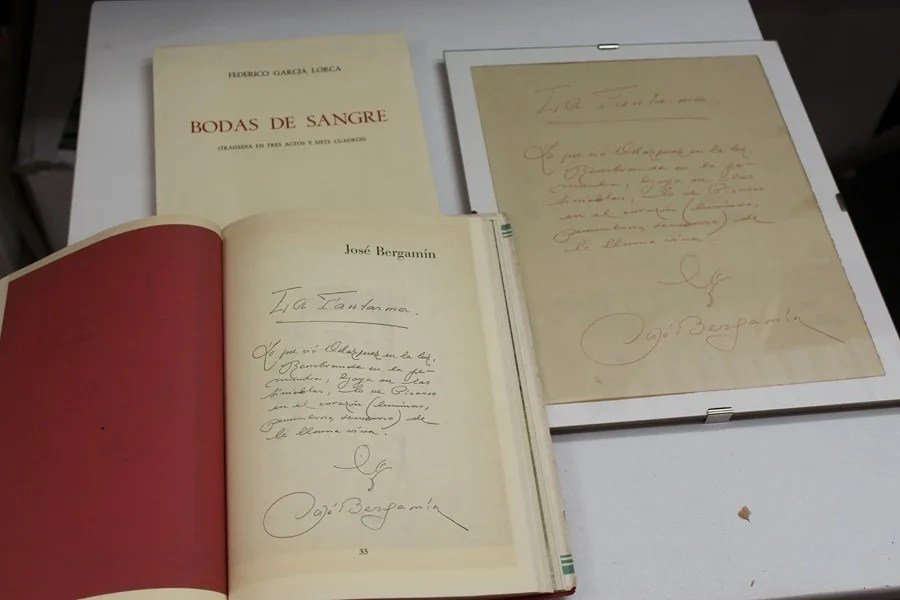 FEDERICO GARCIA LORCA
BODAS DE SANGRE
(TRAGEDIA EN TRES ACTOS Y SIETE CUADROS)
La Fantasma.
Lo que vió Velázquez en la luz,
Rembrandt en la pe-
numbra, Goya en las
tinieblas, lo ve Picasso
en el corazón (luminoso,
penumbroso, tenebroso) de
la llama viva.
José Bergamín
José Bergamín
La Fantasma.
Lo que vió Velázquez en la luz,
Rembrandt en la pe-
numbra, Goya en las
tinieblas, lo ve Picasso
en el corazón (luminoso,
penumbroso, tenebroso) de
la llama viva.
José Bergamín
35